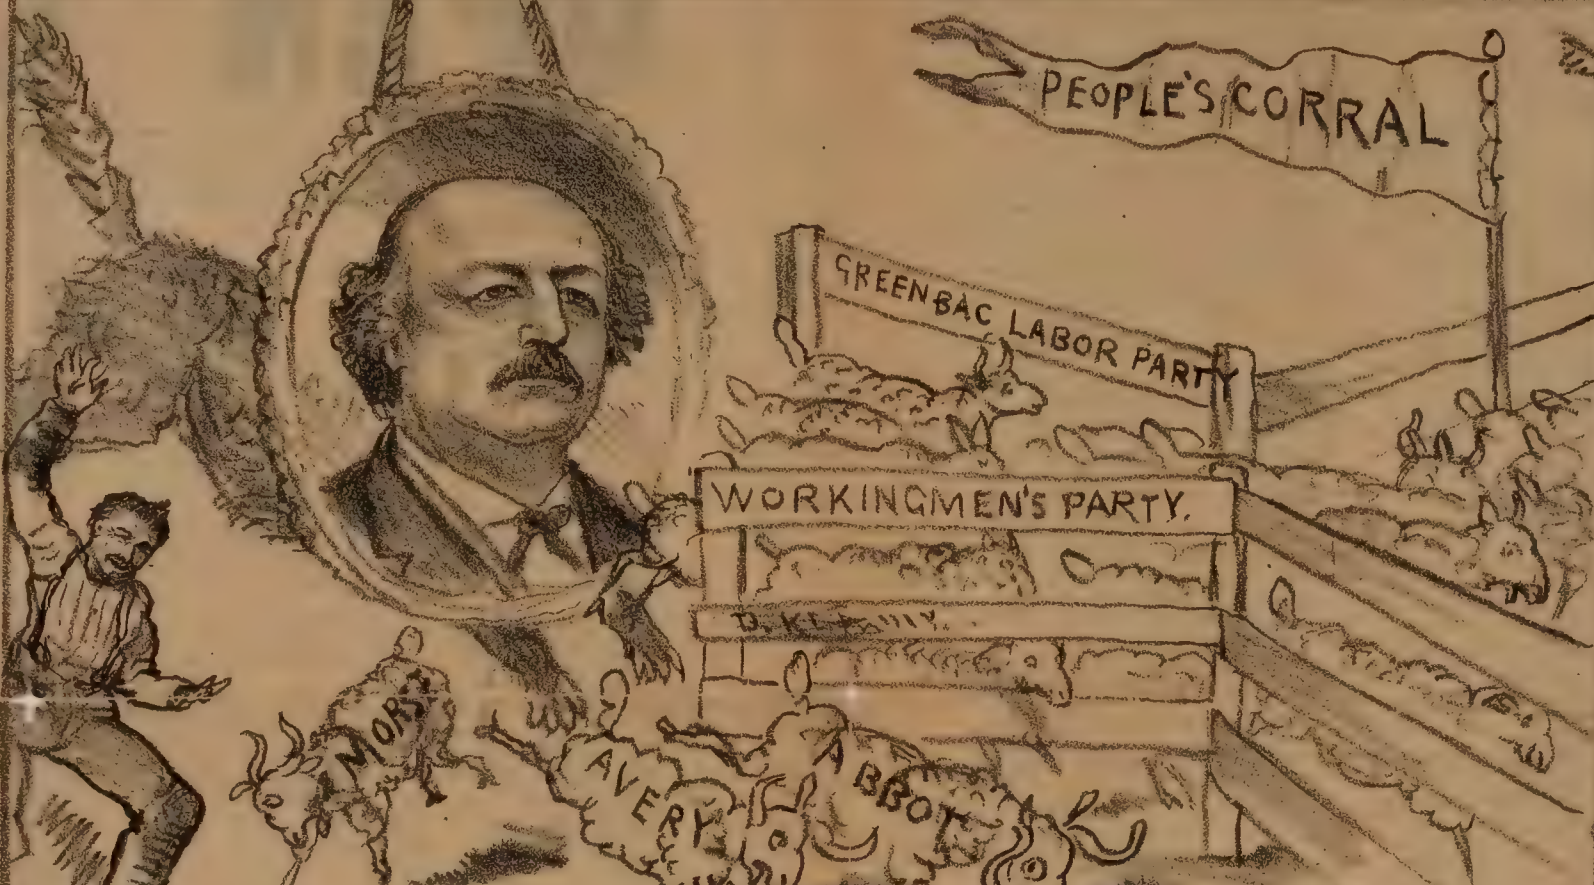 PEOPLE'S CORRAL
GREENBAC LABOR PARTY
WORKINGMEN'S PARTY.
D.
MORSE
AVERY
ABBOT